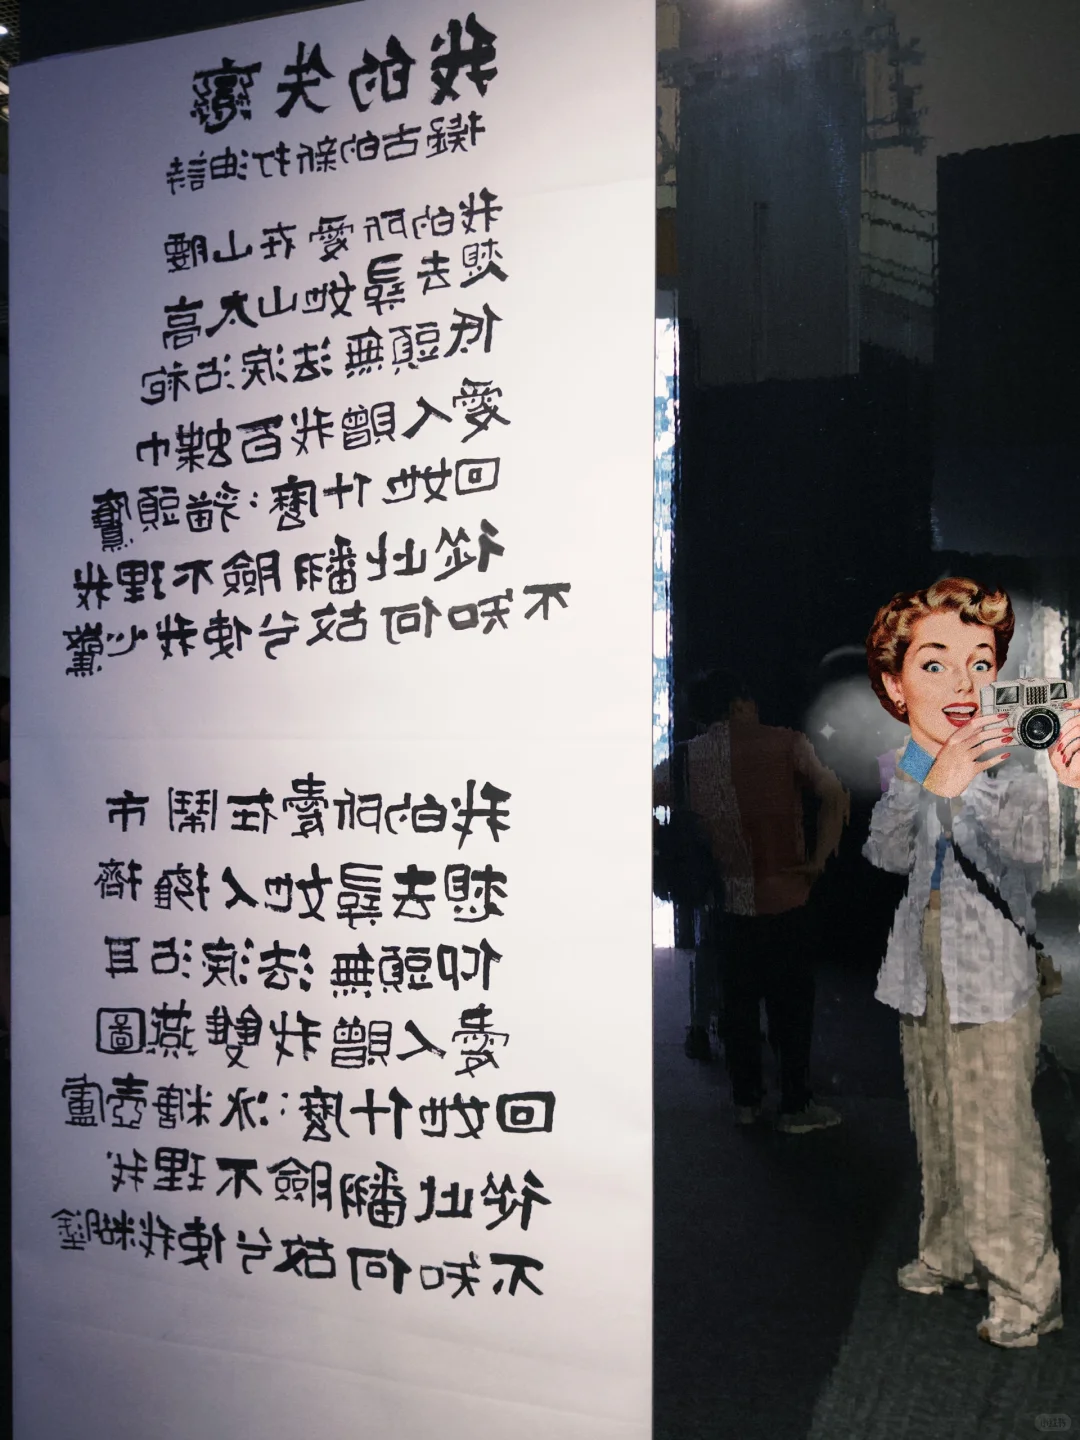 我的失戀
擬古的新打油詩
我的所愛在山腰
想去尋她山太高
低頭無法淚沾袍
愛人贈我百蝶巾
回她什麼:貓頭鷹
從此翻臉不理我
不知何故兮使我心驚
我的所愛在鬧市
想去尋她人擁擠
仰頭無法淚沾耳
愛人贈我雙燕圖
回她什麼:冰糖壺盧
從此翻臉不理我
不知何故兮使我糊塗
小红书